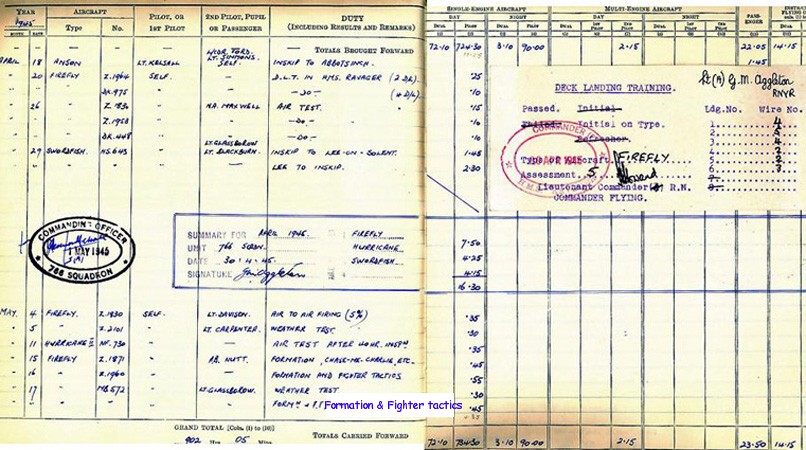 YEAR
AIRCRAFT
PILOT, OR
1ST PILOT
2ND PILOT, PUPIL
OR PASSENGER
DUTY
(INCLUDING RESULTS AND REMARKS)
1945
MONTH DATE Type No.
TOTALS BROUGHT FORWARD
APRIL 18 ANSON LT. KELSALL LT. SIMMONS SELF. INSKIP TO ABBOTSINCH.
20 FIREFLY Z.1964 SELF. — D.L.T. IN HMS. RAVAGER (2 D.L.)
DK.975 — -DO- (4 D/L.)
26 Z.1830 NA. MAXWELL AIR TEST.
Z.1958 — -DO-
DK.448 — -DO-
29 SWORDFISH. HS.643 LT. GLASSBOROW LT. BLACKBURN. INSKIP TO LEE-ON-SOLENT.
— LEE TO INSKIP.
COMMANDING OFFICER
1 MAY 1945
766 SQUADRON
SUMMARY FOR APRIL 1945. FIREFLY
UNIT 766 SQDN. HURRICANE
DATE 30.4.45. SWORDFISH
SIGNATURE
MAY. 4 FIREFLY. Z.1830 SELF. LT. DAVISON. AIR TO AIR FIRING (5%)
5 Z.2101 LT. CARPENTER. WEATHER TEST.
11 HURRICANE II NF.730 — AIR TEST AFTER 40HR. INSPN
15 FIREFLY Z.1871 P.B. NUTT. FORMATION, CHASE-ME-CHARLIE, ETC.
16 Z.1960 — FORMATION AND FIGHTER TACTICS
17 MB.572 LT. GLASSBOROW. WEATHER TEST
Formation & Fighter tactics
GRAND TOTAL [Cols. (1) to (10)]
902 Hrs 05 Mins.
TOTALS CARRIED FORWARD
SINGLE-ENGINE AIRCRAFT MULTI-ENGINE AIRCRAFT
DAY NIGHT DAY NIGHT
PASSENGER
DUAL PILOT DUAL PILOT DUAL 1ST PILOT 2ND PILOT DUAL 1ST PILOT 2ND PILOT
72.10 724.30 3.10 90.00 2.15 22.05 14.15
1.45
.25
.10
.15
.10
.10
1.45
2.30
7.50
4.25
4.15
16.30
.35
.30
.35
.45
.55
.30
.45
72.10 734.30 3.10 90.00 2.15 23.50 14.15
Lt (A) G.M. Aggleton
RNVR
DECK LANDING TRAINING.
Passed. Initial Ldg.No. Wire No.
Failed. Initial on Type. 1 4
Refresher. 2 5
3 4
4 2
Type of Aircraft FIREFLY 5 2
Assessment 5 6
7
Lieutenant Commander R.N. 8
COMMANDER FLYING.
COMMANDER